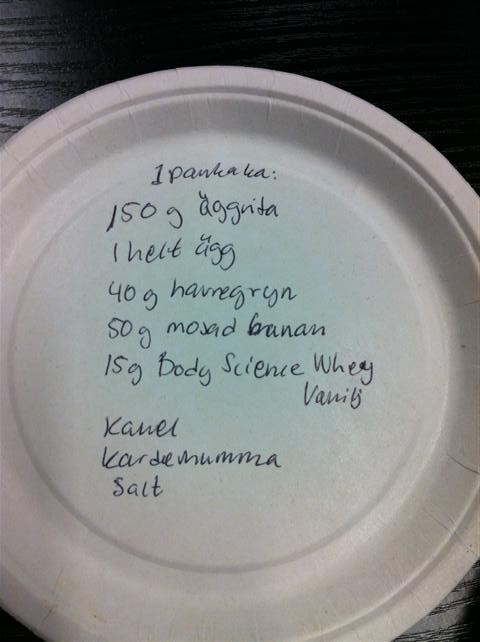 1 pankaka:
150 g äggvita
1 helt ägg
40 g havregryn
50 g mosad banan
15g Body Science Whey
Vanilj
Kanel
Kardemumma
Salt